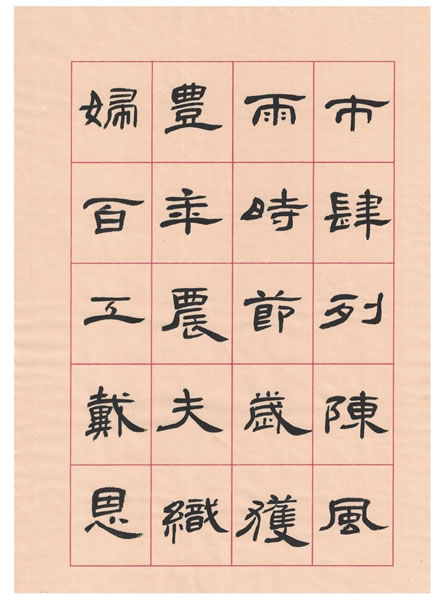 市肆列陳風
雨時節歲獲
豐年農夫織
婦百工戴恩